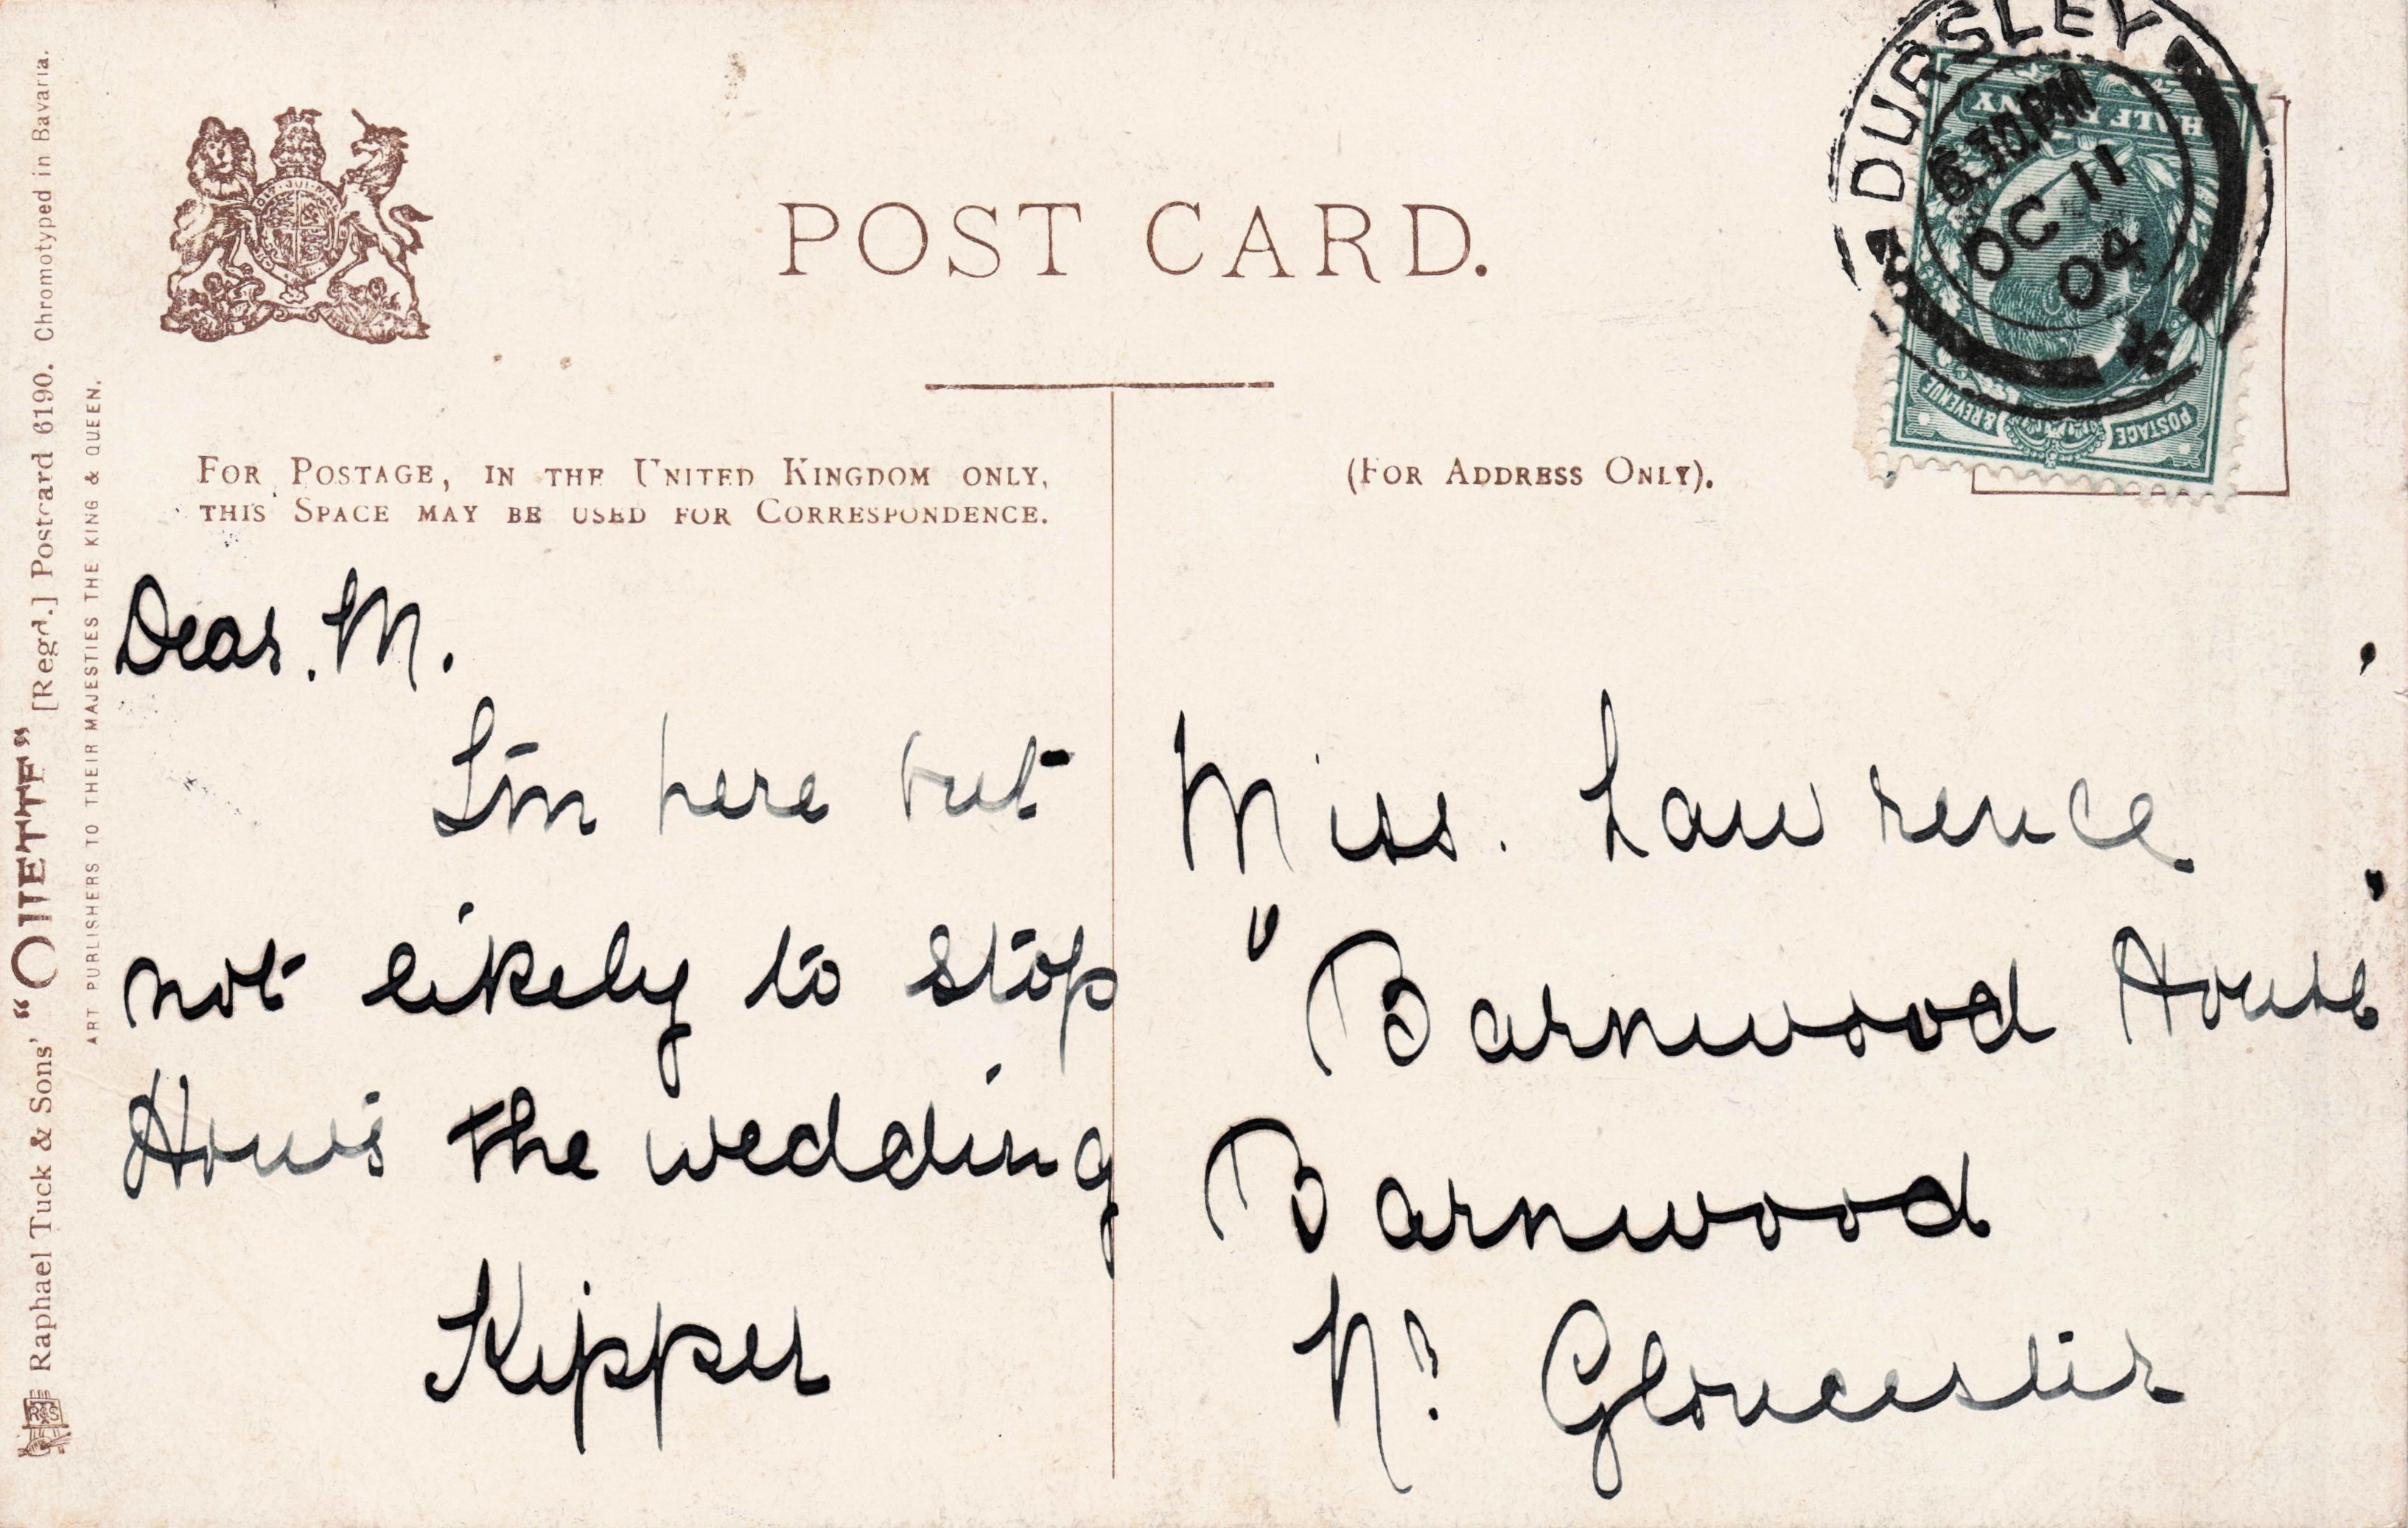 POST CARD.
FOR POSTAGE, IN THE UNITED KINGDOM ONLY,
THIS SPACE MAY BE USED FOR CORRESPONDENCE.
(FOR ADDRESS ONLY).
Dear. M.
I'm here but
not likely to stop
How's the wedding
Kipper
Miss. Lawrence
"Barnwood House"
Barnwood
Nr. Gloucester
DURSLEY
6.30 PM
OC 11
04
HALF PENNY
POSTAGE & REVENUE
Raphael Tuck & Sons' "OILETTE" [Regd.] Postcard 6190. Chromotyped in Bavaria.
ART PUBLISHERS TO THEIR MAJESTIES THE KING & QUEEN.